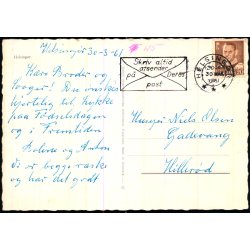 Helsingør 30-3-61
Kære Broder og
Svoger! Du ønskes
hjertelig til lykke
paa Fødselsdagen
og i Fremtiden
Bolene og Anton
de er begge raske
og har det godt
Skriv altid
afsender
på Deres
post
HELSINGØR
30
1961
Herrn Niels Olsen
Gadevang
Hillerød